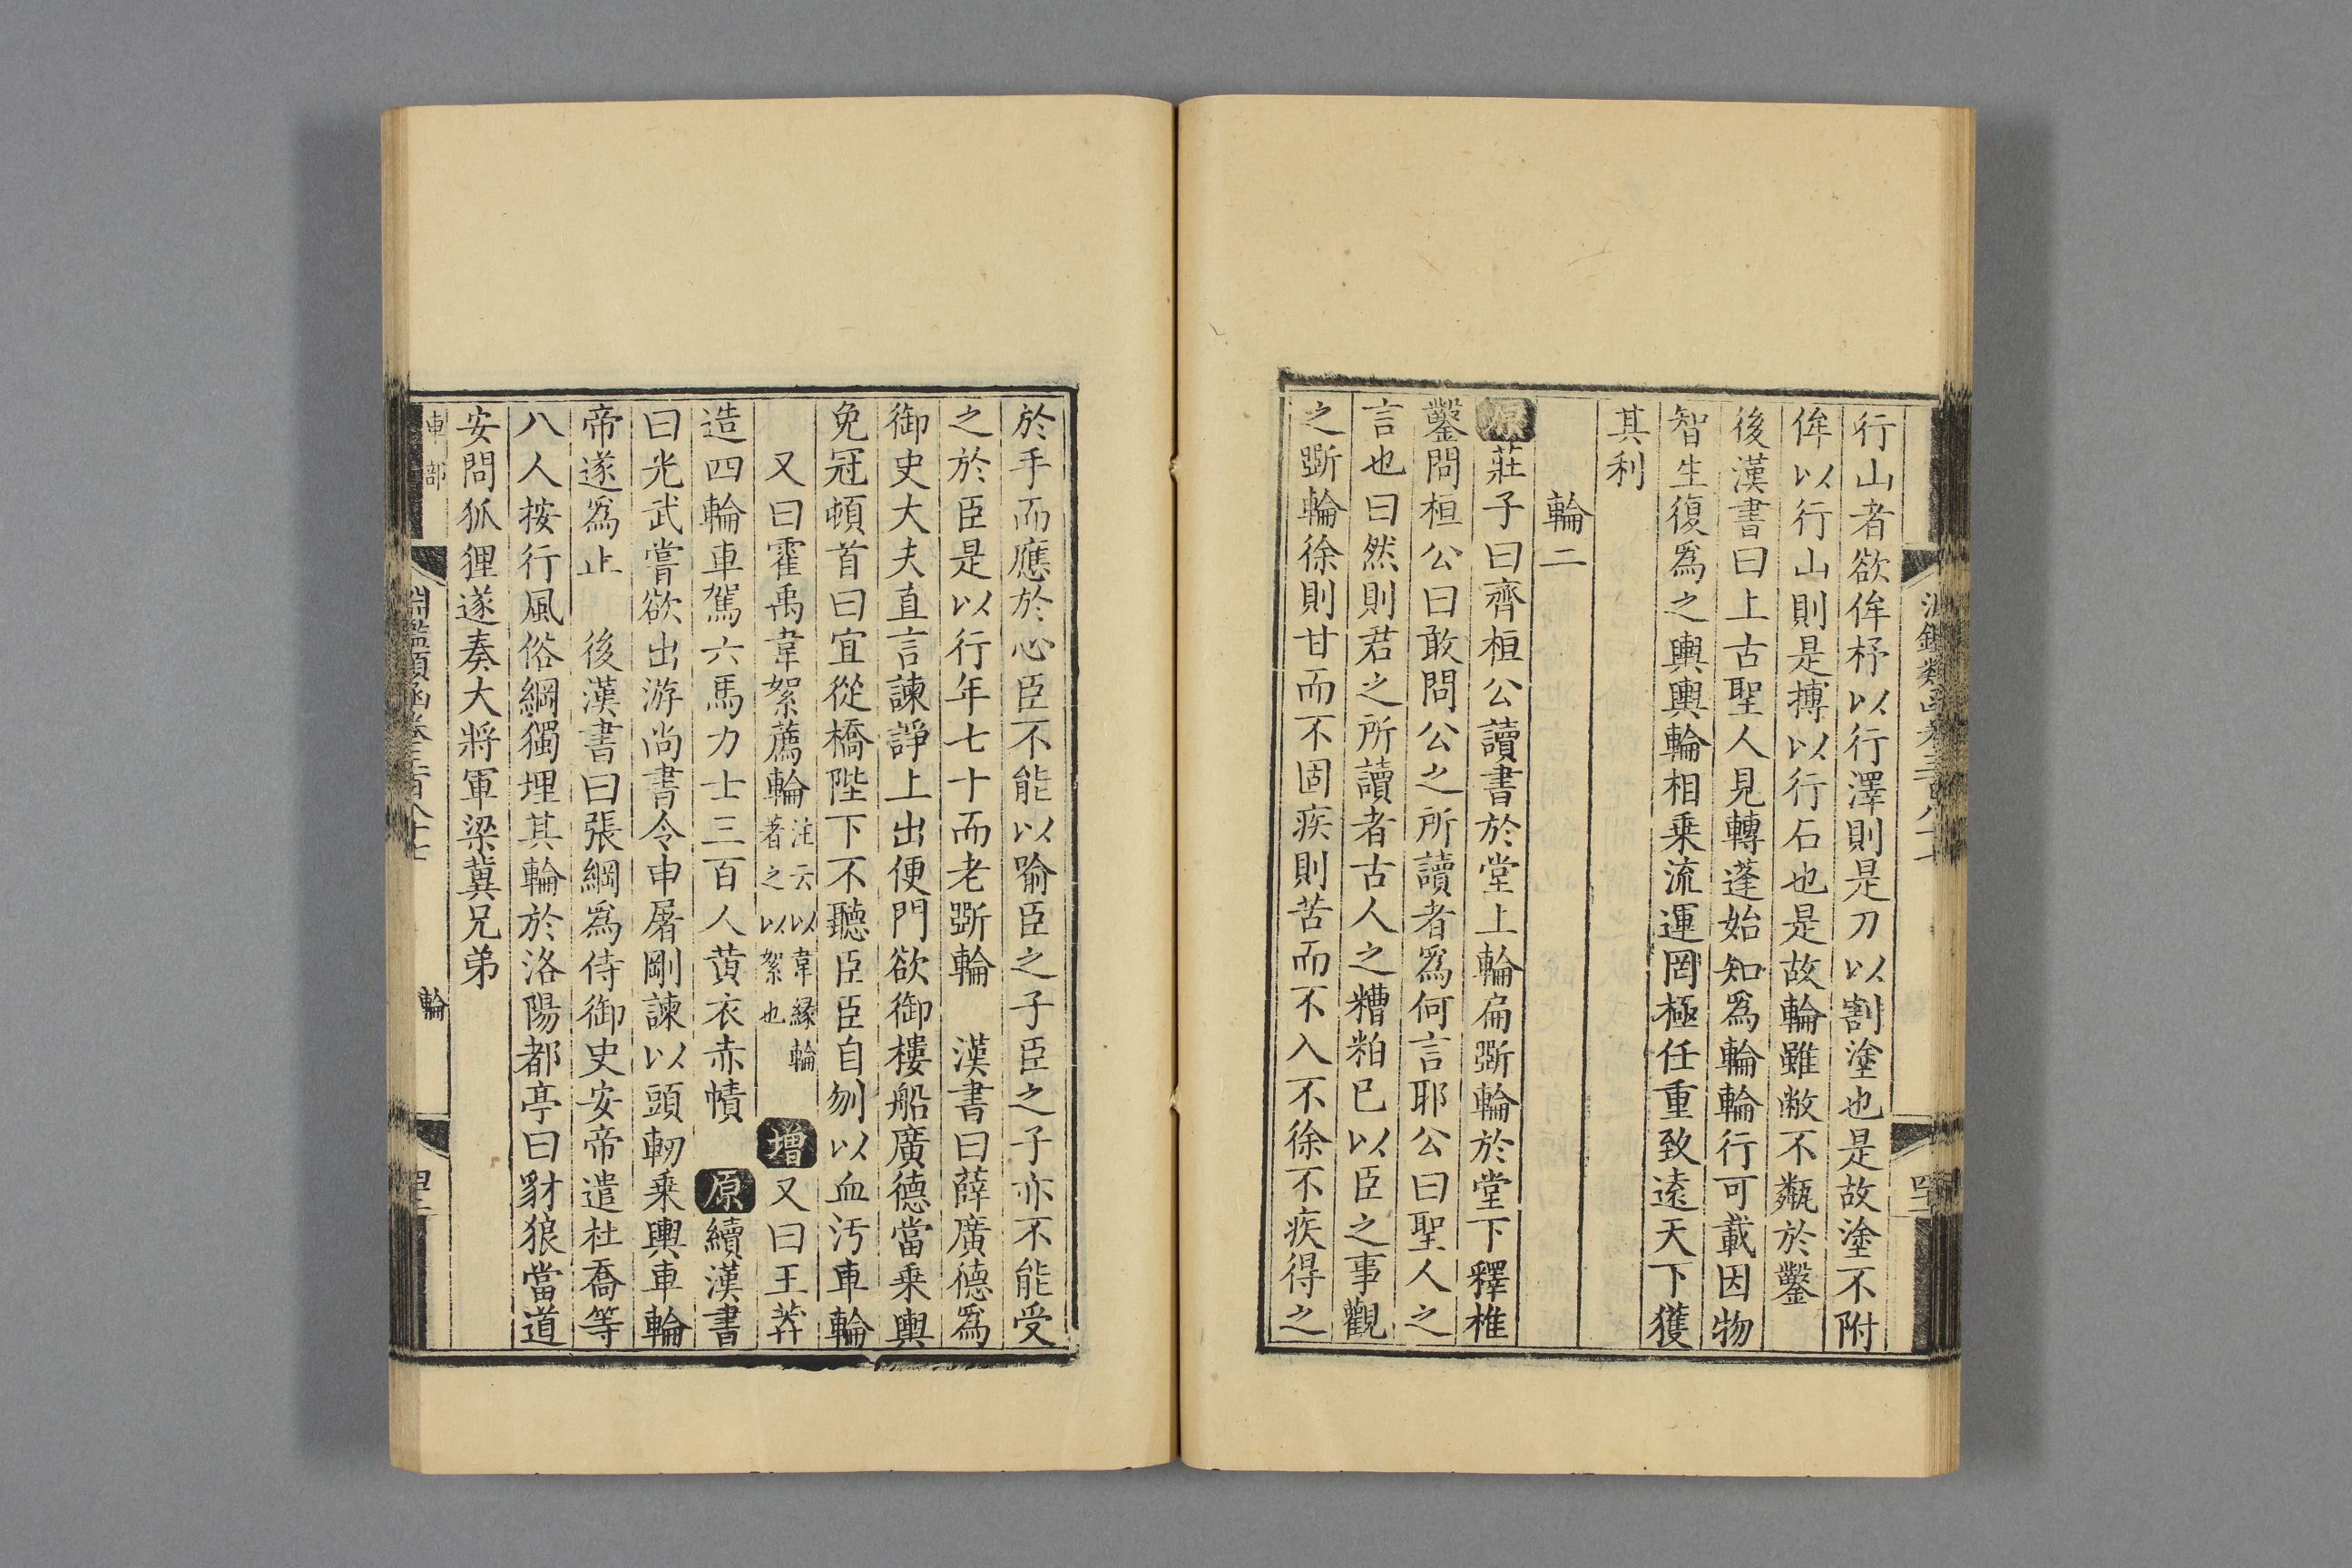 行山者欲侔杼以行澤則是刀以割塗也是故塗不附
侔以行山則是摶以行石也是故輪雖敝不甐於鑿
後漢書曰上古聖人見轉蓬始知爲輪輪行可載因物
智生復爲之輿輿輪相乗流運罔極任重致遠天下獲
其利
輪二
原莊子曰齊桓公讀書於堂上輪扁斵輪於堂下釋椎
鑿問桓公曰敢問公之所讀者爲何言耶公曰聖人之
言也曰然則君之所讀者古人之糟粕已以臣之事觀
之斵輪徐則甘而不固疾則苦而不入不徐不疾得之
於手而應於心臣不能以喻臣之子臣之子亦不能受
之於臣是以行年七十而老斵輪　漢書曰薛廣德爲
御史大夫直言諫諍上出便門欲御樓船廣德當乗輿
免冠頓首曰宜從橋陛下不聽臣臣自刎以血汚車輪
又曰霍禹韋絮薦輪注云以韋縁輪著之以絮也増又曰王莽
造四輪車駕六馬力士三百人黄衣赤幘原續漢書
曰光武嘗欲出游尚書令申屠剛諫以頭軔乗輿車輪
帝遂爲止　後漢書曰張綱爲侍御史安帝遣杜喬等
八人按行風俗綱獨埋其輪於洛陽都亭曰豺狼當道
安問狐狸遂奏大將軍梁冀兄弟
車部
輪